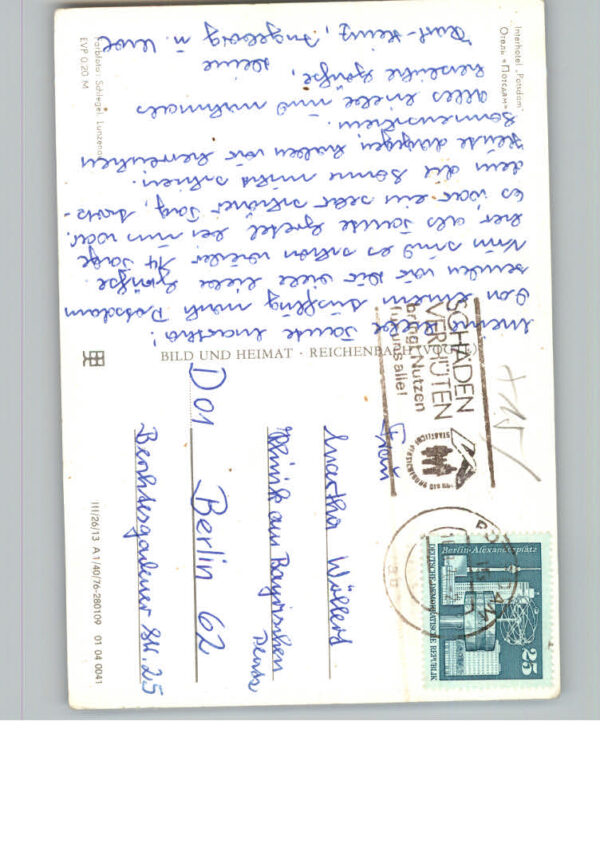 Interhotel „Potsdam“
Отель «Потсдам»
Meine liebe Tante Martha!
Von einem Ausflug nach Potsdam
senden wir Dir viele liebe Grüße.
Nun sind es schon wieder 14 Tage
her als Tante Gretel bei uns war.
Es war ein sehr schöner Tag, trotz-
dem die Sonne nicht schien.
Heute dagegen haben wir herrlichen
Sonnenschein.
Alles Liebe und nochmals
herzliche Grüße,
Deine
Karl-Heinz, Ingeborg u. Uwe
Farbfoto: Schlegel, Lunzenau
EVP 0,20 M
BILD UND HEIMAT · REICHENBACH (VOGTL)
SCHÄDEN
VERHÜTEN
bringt Nutzen
für uns alle!
STAATLICHE VERSICHERUNG
POTSDAM
Berlin-Alexanderplatz
DEUTSCHE DEMOKRATISCHE REPUBLIK
25
+15
Frau
Martha Wöllert
Klinik am Bayrischen
Platz
D 01 Berlin 62
Berchtesgadener Str. 25
III/26/13 A 1/40/76-280109 01 04 0041